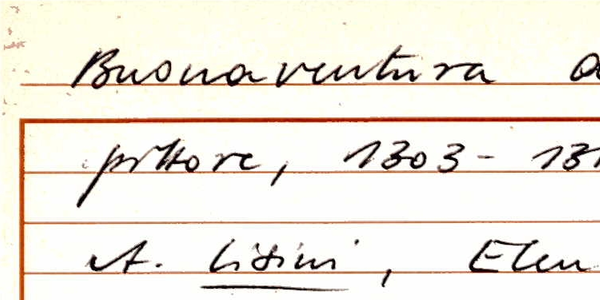 Buonaventura
pittore, 1303-
A. Lisini, Elen